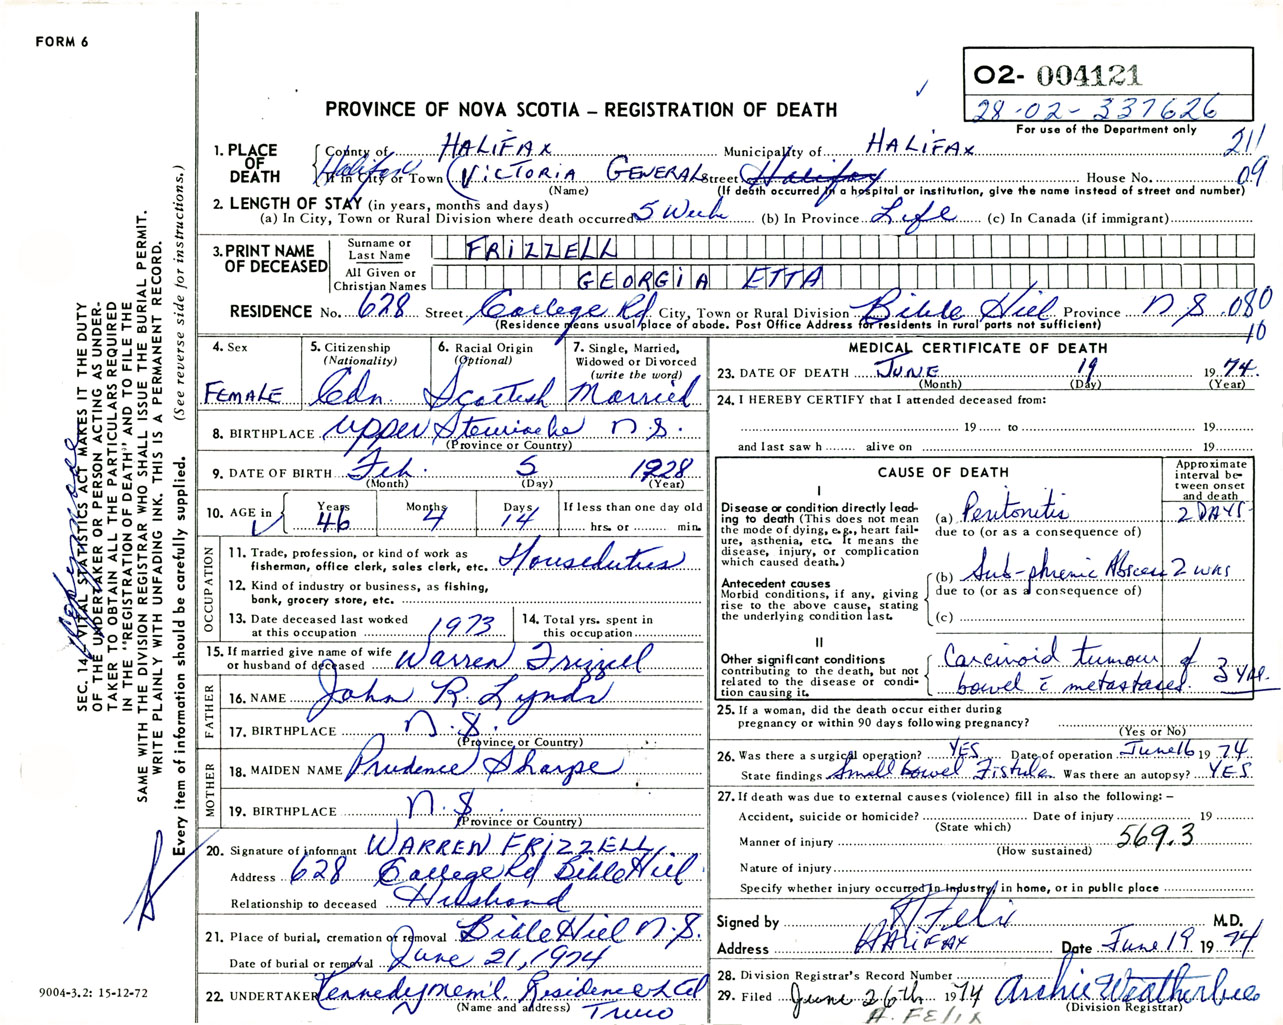 FORM 6
O2- 004121
28-02-337626
For use of the Department only
PROVINCE OF NOVA SCOTIA – REGISTRATION OF DEATH
1. PLACE OF DEATH
County of HALIFAX Municipality of HALIFAX 211
Halifax
If in City or Town (VICTORIA GENERAL Street Halifax House No. 09
(Name) (If death occurred in a hospital or institution, give the name instead of street and number)
2. LENGTH OF STAY (in years, months and days)
(a) In City, Town or Rural Division where death occurred 5 Weeks (b) In Province Life (c) In Canada (if immigrant)
3. PRINT NAME OF DECEASED
Surname or Last Name FRIZZELL
All Given or Christian Names GEORGIA ETTA
RESIDENCE No. 628 Street College Rd City, Town or Rural Division Bible Hill Province N S 080
(Residence means usual place of abode. Post Office Address for residents in rural parts not sufficient) 10
4. Sex
FEMALE
5. Citizenship
(Nationality)
Cdn.
6. Racial Origin
(Optional)
Scottish
7. Single, Married, Widowed or Divorced
(write the word)
Married
8. BIRTHPLACE Upper Stewiacke N.S.
(Province or Country)
9. DATE OF BIRTH Feb. 5 1928
(Month) (Day) (Year)
10. AGE in
Years 46
Months 4
Days 14
If less than one day old
hrs. or min.
OCCUPATION
11. Trade, profession, or kind of work as fisherman, office clerk, sales clerk, etc. Houseduties
12. Kind of industry or business, as fishing, bank, grocery store, etc.
13. Date deceased last worked at this occupation 1973
14. Total yrs. spent in this occupation
15. If married give name of wife or husband of deceased Warren Frizzell
FATHER
16. NAME John R. Lynds
17. BIRTHPLACE N.S.
(Province or Country)
MOTHER
18. MAIDEN NAME Prudence Sharpe
19. BIRTHPLACE N.S.
(Province or Country)
20. Signature of informant WARREN FRIZZELL
Address 628 College Rd Bible Hill
Relationship to deceased Husband
21. Place of burial, cremation or removal Bible Hill N.S.
Date of burial or removal June 21, 1974
22. UNDERTAKER Kennedy
(Name and address) Truro
MEDICAL CERTIFICATE OF DEATH
23. DATE OF DEATH JUNE 19 1974.
(Month) (Day) (Year)
24. I HEREBY CERTIFY that I attended deceased from:
19 to 19
and last saw h alive on 19
CAUSE OF DEATH
Approximate interval between onset and death
I
Disease or condition directly leading to death (This does not mean the mode of dying, e.g., heart failure, asthenia, etc. It means the disease, injury, or complication which caused death.)
(a) Peritonitis 2 DAYS
due to (or as a consequence of)
Antecedent causes
Morbid conditions, if any, giving rise to the above cause, stating the underlying condition last.
(b) Sub-phrenic Abscess 2 wks
due to (or as a consequence of)
(c)
II
Other significant conditions contributing to the death, but not related to the disease or condition causing it.
Carcinoid tumour of
bowel c̄ metastases. 3 yrs.
25. If a woman, did the death occur either during pregnancy or within 90 days following pregnancy?
(Yes or No)
26. Was there a surgical operation? YES Date of operation June 16 1974
State findings Small Bowel Fistula Was there an autopsy? YES
27. If death was due to external causes (violence) fill in also the following: –
Accident, suicide or homicide? Date of injury 19
(State which)
Manner of injury 569.3
(How sustained)
Nature of injury
Specify whether injury occurred in industry, in home, or in public place
Signed by A Felix M.D.
Address HALIFAX Date June 19 1974
28. Division Registrar's Record Number
29. Filed June 26th 1974 Archie Weatherbee
(Division Registrar)
A. FELIX
SEC. 14 VITAL STATISTICS ACT MAKES IT THE DUTY
OF THE UNDERTAKER OR PERSON ACTING AS UNDER-
TAKER TO OBTAIN ALL THE PARTICULARS REQUIRED
IN THE "REGISTRATION OF DEATH" AND TO FILE THE
SAME WITH THE DIVISION REGISTRAR WHO SHALL ISSUE THE BURIAL PERMIT.
WRITE PLAINLY WITH UNFADING INK. THIS IS A PERMANENT RECORD.
Every item of information should be carefully supplied. (See reverse side for instructions.)
9004-3.2: 15-12-72